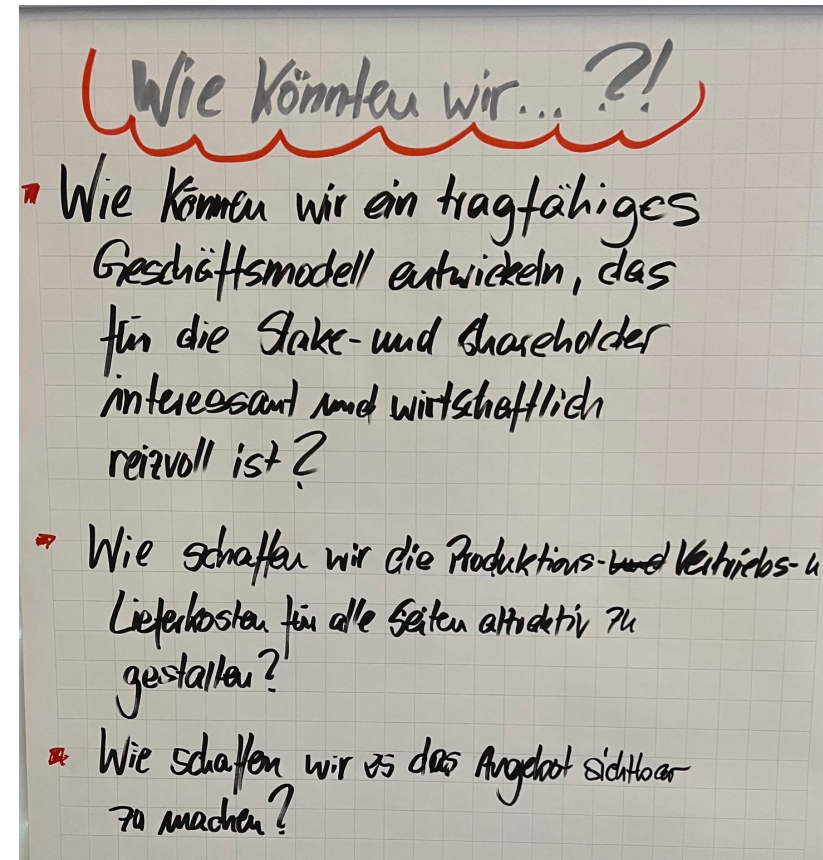 Wie Könnten wir... ?!
Wie Können wir ein tragfähiges
Geschäftsmodell entwickeln, das
für die Stake- und Shareholder
interessant und wirtschaftlich
reizvoll ist?
Wie schaffen wir die Produktions- und Vertriebs- u
Lieferkosten für alle Seiten attraktiv zu
gestalten?
Wie schaffen wir es das Angebot sichtbar
zu machen?